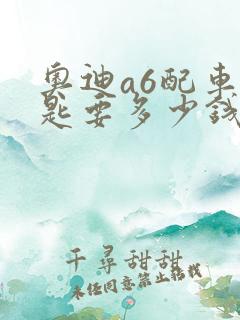 奧迪a6配車
匙要多少錢
千尋甜甜
未经同意禁止转载